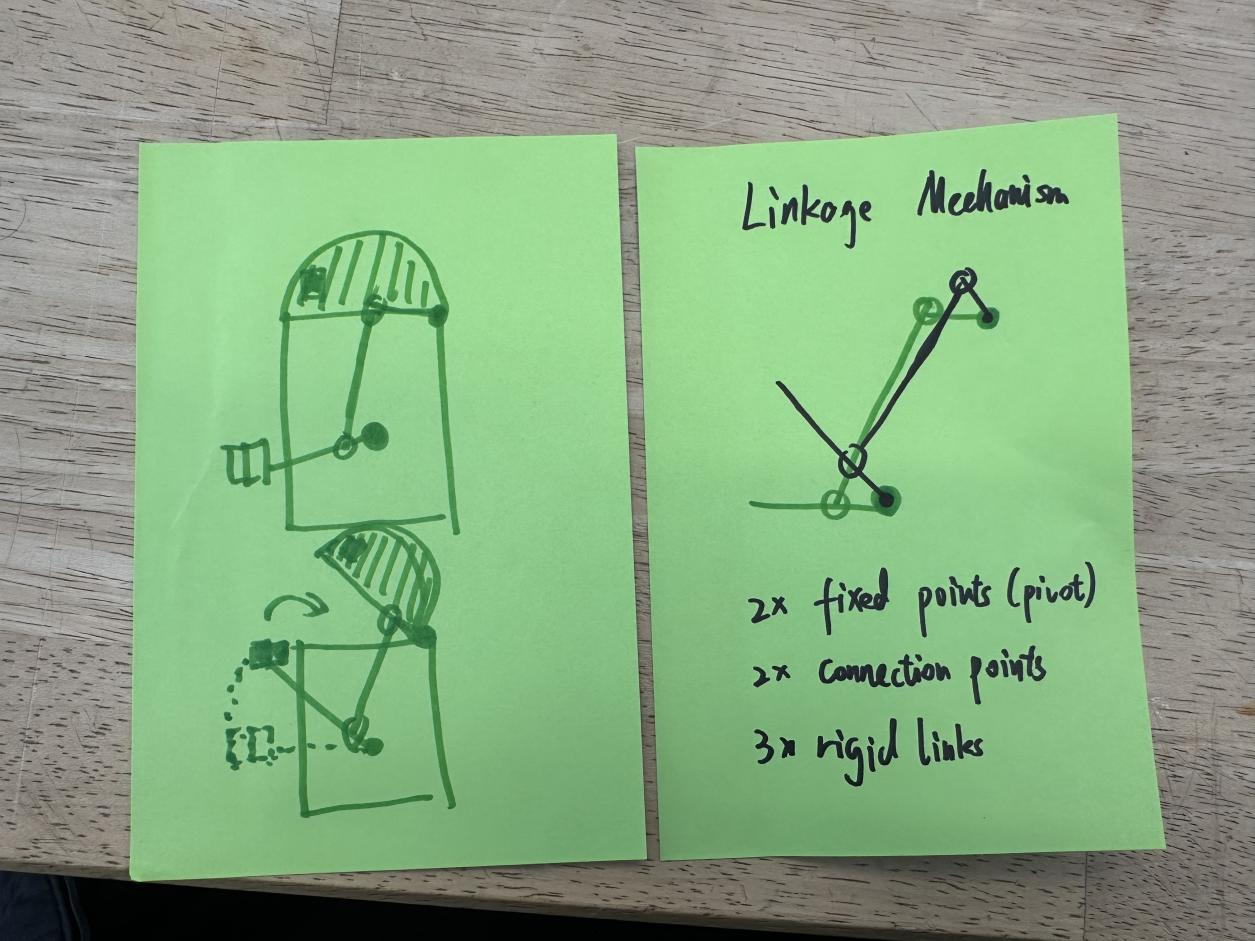 Linkage Mechanism
2x fixed points (pivot)
2x connection points
3x rigid links